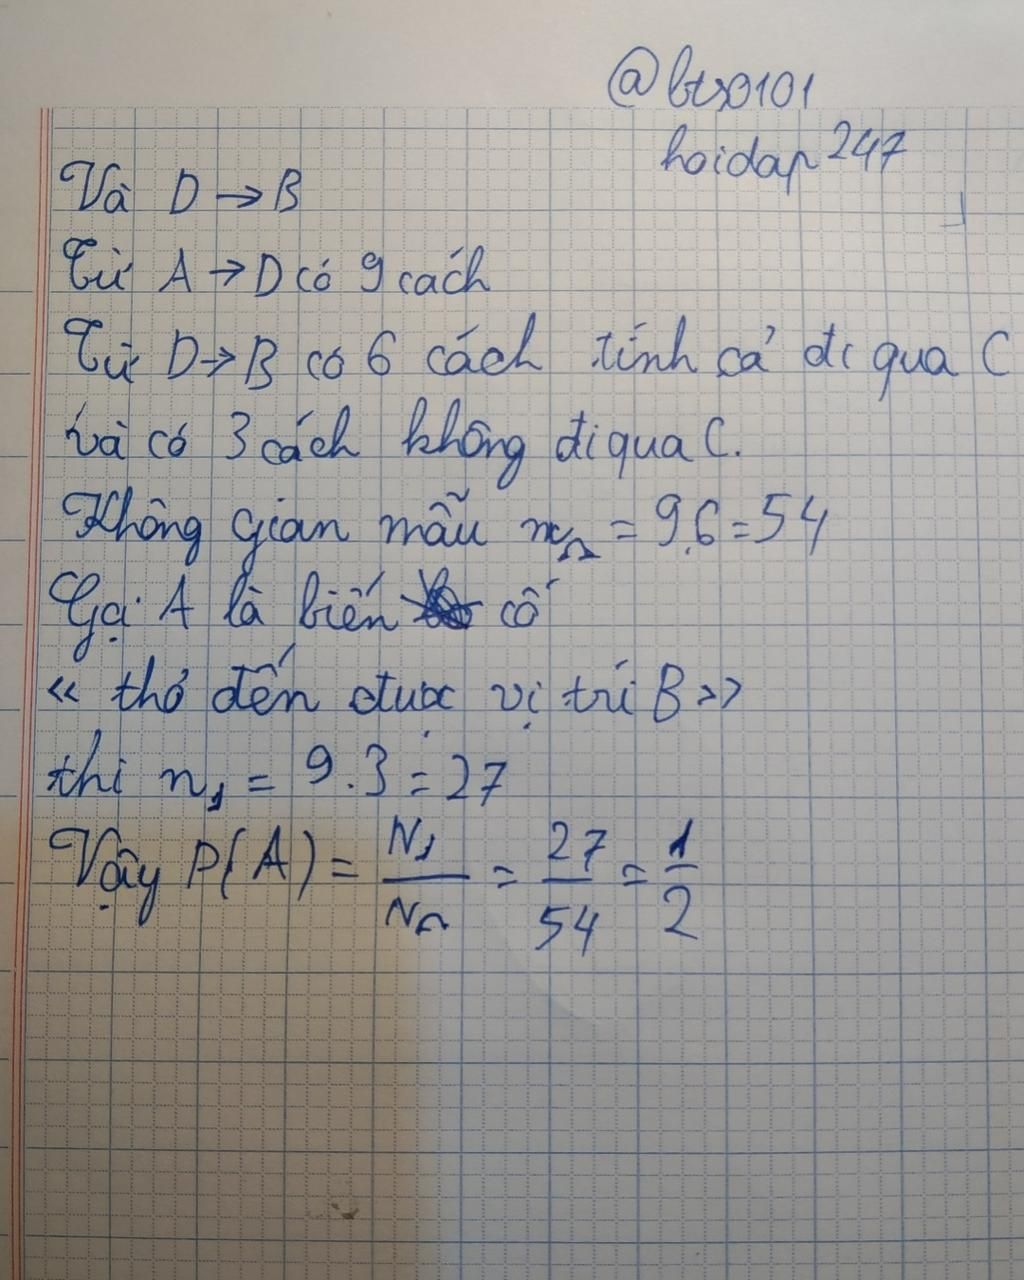 @bts0101
hoidap247
Và D → B
Từ A → D có 9 cách
Từ D → B có 6 cách tính cả đi qua C
và có 3 cách không đi qua C.
Không gian mẫu n_Ω = 9.6 = 54
Gọi A là biến cố
« thỏ đến được vị trí B »
thì n₁ = 9.3 = 27
Vậy P(A) = N₁/N_Ω = 27/54 = 1/2